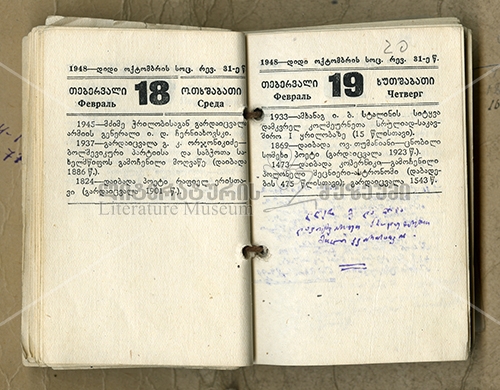 1948—დიდი ოქტომბრის სოც. რევ. 31-ე წ.
თებერვალი 18 ოთხშაბათი
Февраль Среда
1945—მძიმე ჭრილობისაგან გარდაიცვალა
არმიის გენერალი ი. დ. ჩერნიახოვსკი.
1937—გარდაიცვალა გ. კ. ორჯონიკიძე—
ბოლშევიკური პარტიისა და საბჭოთა სა-
ხელმწიფოს გამოჩენილი მოღვაწე (დაიბადა
1886 წ.)
1824—დაიბადა პოეტი რაფიელ ერისთა-
ვი (გარდაიცვალა 1901 წ.)
20
1948—დიდი ოქტომბრის სოც. რევ. 31-ე წ.
თებერვალი 19 ხუთშაბათი
Февраль Четверг
1933—ამხანაგ ი. ბ. სტალინის სიტყვა
დამკვრელ კოლმეურნეთა სრულიად-საკავ-
შირო I ყრილობაზე (15 წლისთავი).
1869—დაიბადა ოვ. თუმანიანი—ცნობილი
სომეხი პოეტი (გარდაიცვალა 1923 წ.)
1473—დაიბადა კოპერნიკი—გამოჩენილი
პოლონელი მეცნიერი-ასტრონომი (დაბადე-
ბის 475 წლისთავი, გარდაიცვალა 1543 წ.
ლიტერატურის მუზეუმი
Literature Museum